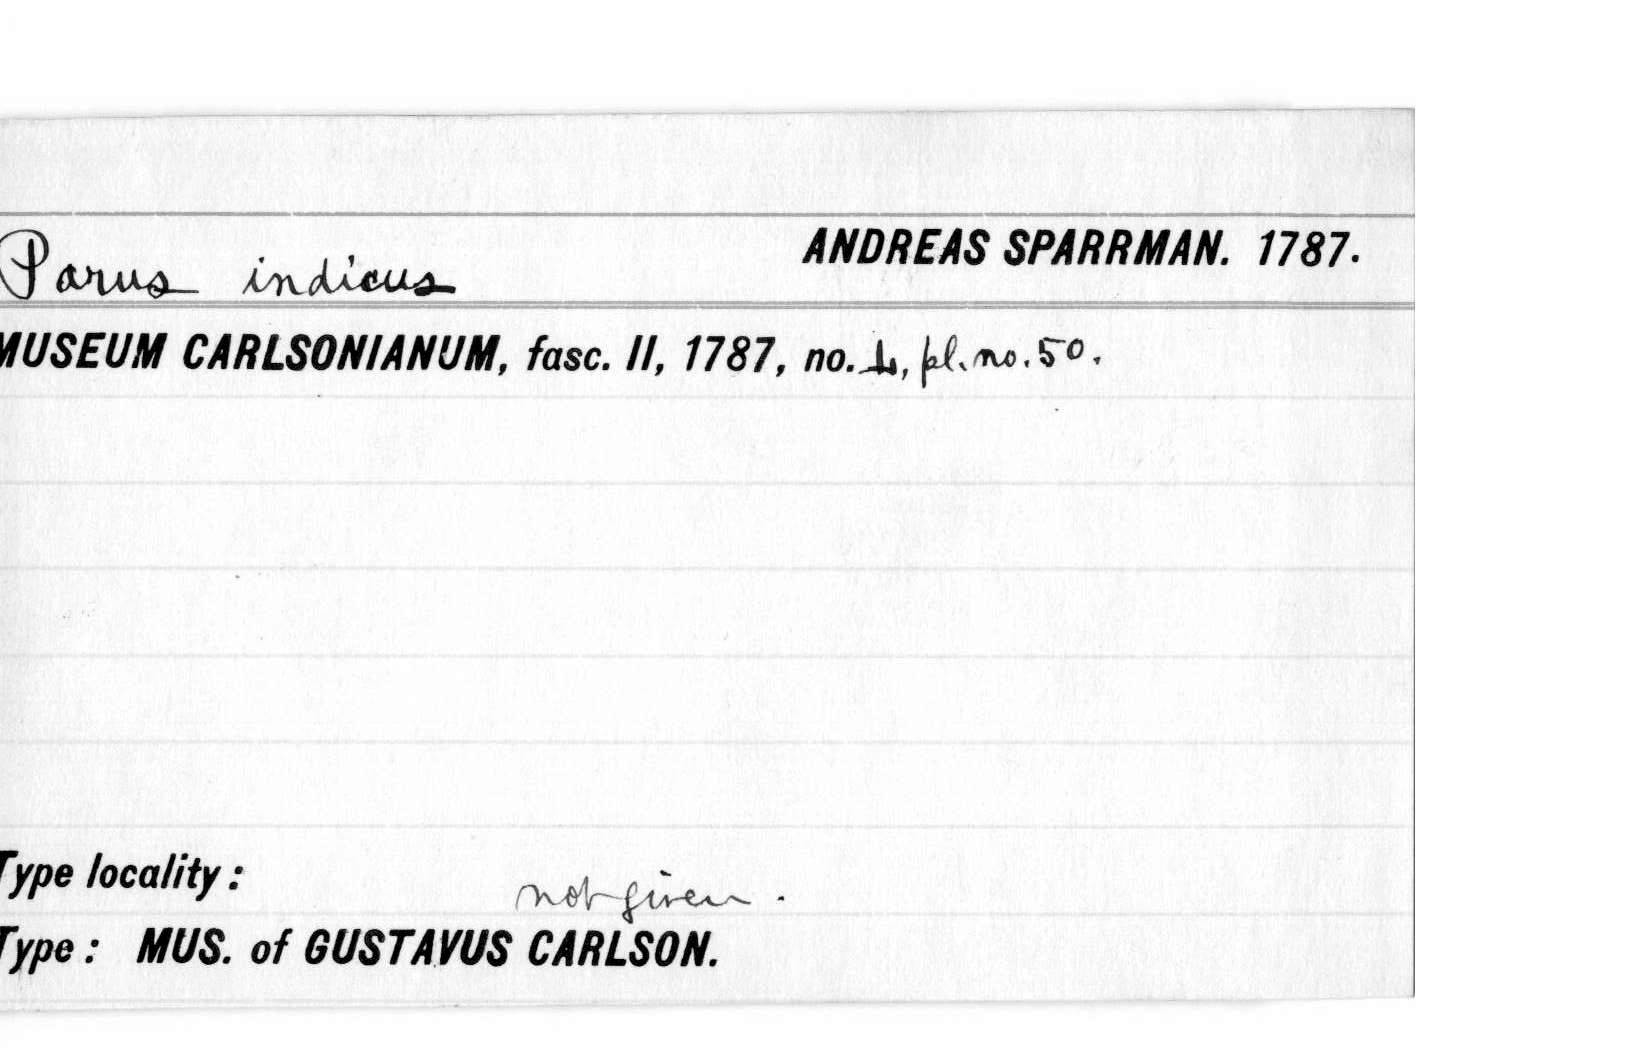 Parus indicus
ANDREAS SPARRMAN. 1787.
MUSEUM CARLSONIANUM, fasc. II, 1787, no. , pl. no. 50.
Type locality :
not given.
Type : MUS. of GUSTAVUS CARLSON.